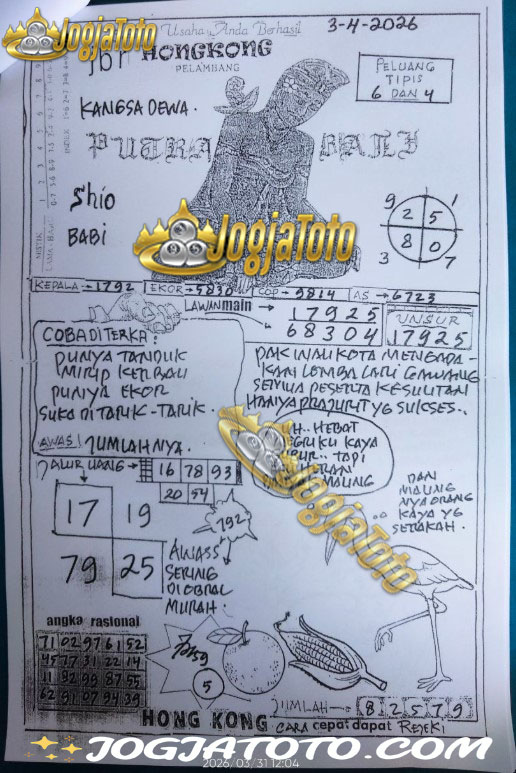 Usaha Anda Berhasil
3-4-2026
JogjaToto
HONGKONG
PELAMBANG
PELUANG
TIPIS
6 DAN 4
KANGSA DEWA.
PUTRA BALI
Shio
BABI
9 1
2 5
8 0
3 7
JogjaToto
KEPALA → 1792 EKOR → 5830 COP → 9814 AS → 6723
LAWAN main → 17925
68304
UNSUR
17925
COBA DI TERKA:
PUNYA TANDUK
MIRIP KERBAU
PUNYA EKOR
SUKA DI TARIK-TARIK.
AWAS! JUMLAHNYA.
PAK WALIKOTA MENGADA-
KAN LOMBA LARI GAWANG
SEMUA PESERTA KESULITAN
HANYA PRAJURIT YG SUKSES..
HEBAT
KAYA
TAPI
HERAN
JALUR UANG → 16 78 93
20 54
17 19
79 25
792
AWASS
SERING
DI OBRAL
MURAH.
DAN
NYA ORANG
KAYA YG
SERAKAH.
JogjaToto
angka rasional
71 02 97 61 52
45 77 31 22 14
11 82 99 87 55
62 91 07 94 39
5
JUMLAH → 8 2 5 7 9
HONG KONG CARA cepat dapat REJEKI
JOGJATOTO.COM
2026/03/31 12:04